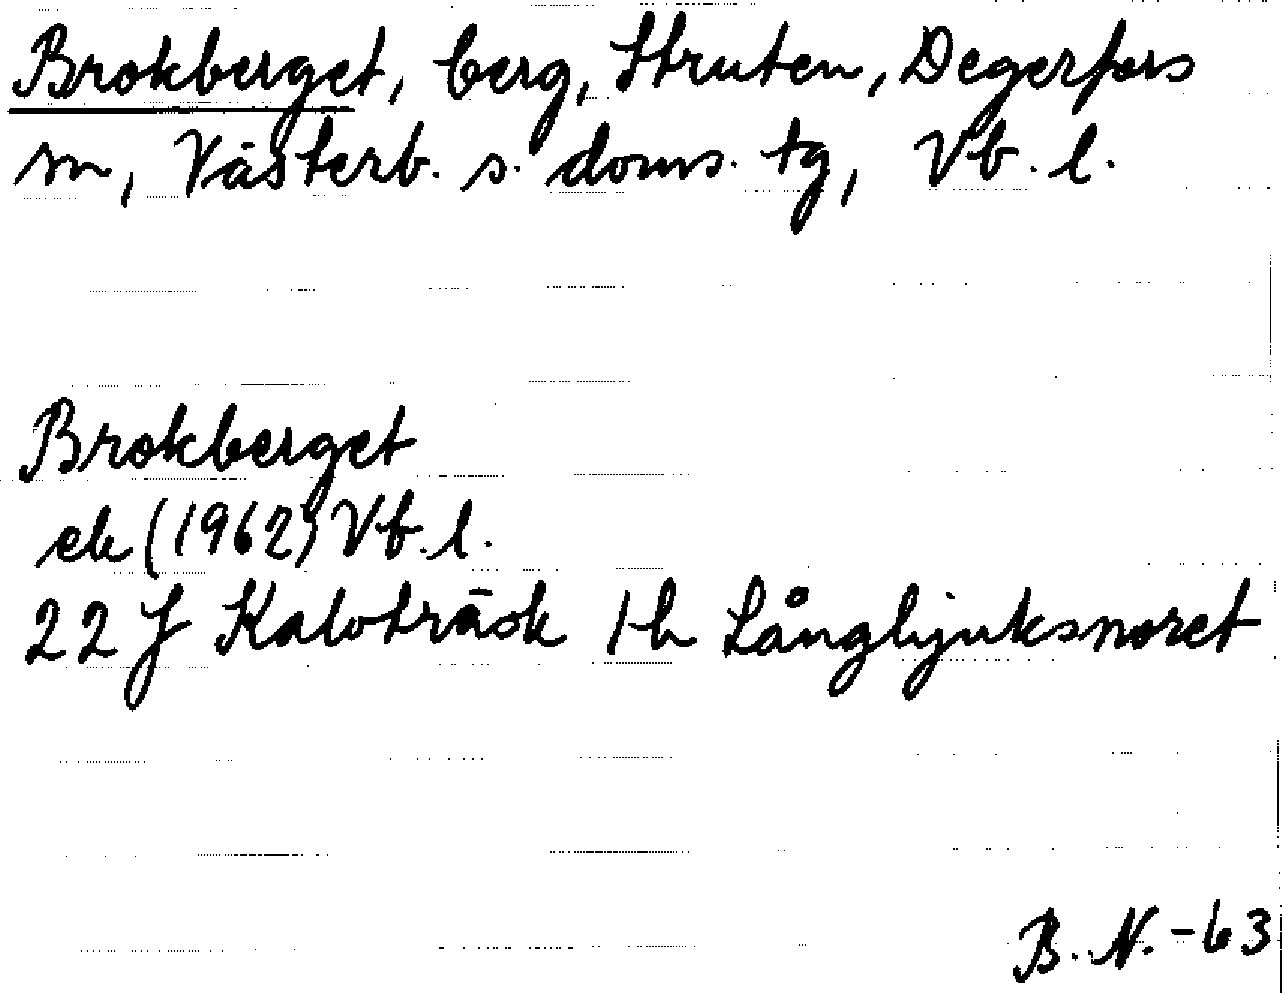 Brokberget, berg, Struten, Degerfors
sn, Västerb. s. doms. tg, Vb. l.
Brokberget
ek (1962) Vb. l.
22 J Kalvträsk 1 h Långbjuksnoret
B. N. -63